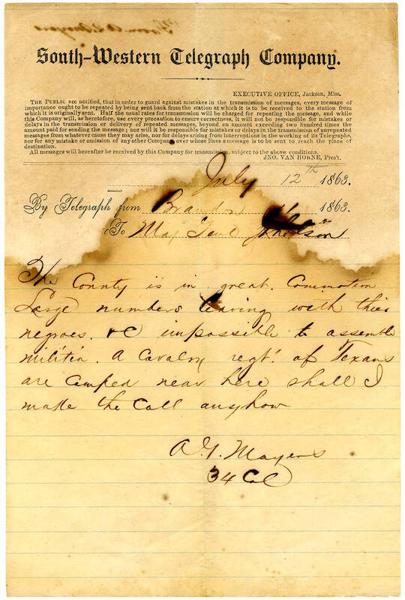 From A G Mayers
South-Western Telegraph Company.
EXECUTIVE OFFICE, Jackson, Miss.
THE PUBLIC are notified, that in order to guard against mistakes in the transmission of messages, every message of
importance ought to be repeated by being sent back from the station at which it is to be received to the station from
which it is originally sent. Half the usual rates for transmission will be charged for repeating the message, and while
this Company will, as heretofore, use every precaution to ensure correctness, it will not be responsible for mistakes or
delays in the transmission or delivery of repeated messages, beyond an amount exceeding two hundred times the
amount paid for sending the message; nor will it be responsible for mistakes or delays in the transmission of unrepeated
messages from whatever cause they may arise, nor for delays arising from interruptions in the working of its Telegraphs,
nor for any mistake or omission of any other Company over whose lines a message is to be sent to reach the place of
destination.
All messages will hereafter be received by this Company for transmission, subject to the above conditions.
JNO. VAN HORNE, Pres't.
July 12th 1863.
By Telegraph from Brandon 1863.
To Maj Genl Johnson
The County is in great Commotion
Large numbers leaving with their
negroes. &C impossible to assemble
militia. A Cavalry regt. of Texans
are camped near here shall I
make the Call anyhow
A. G. Mayers
34 Col